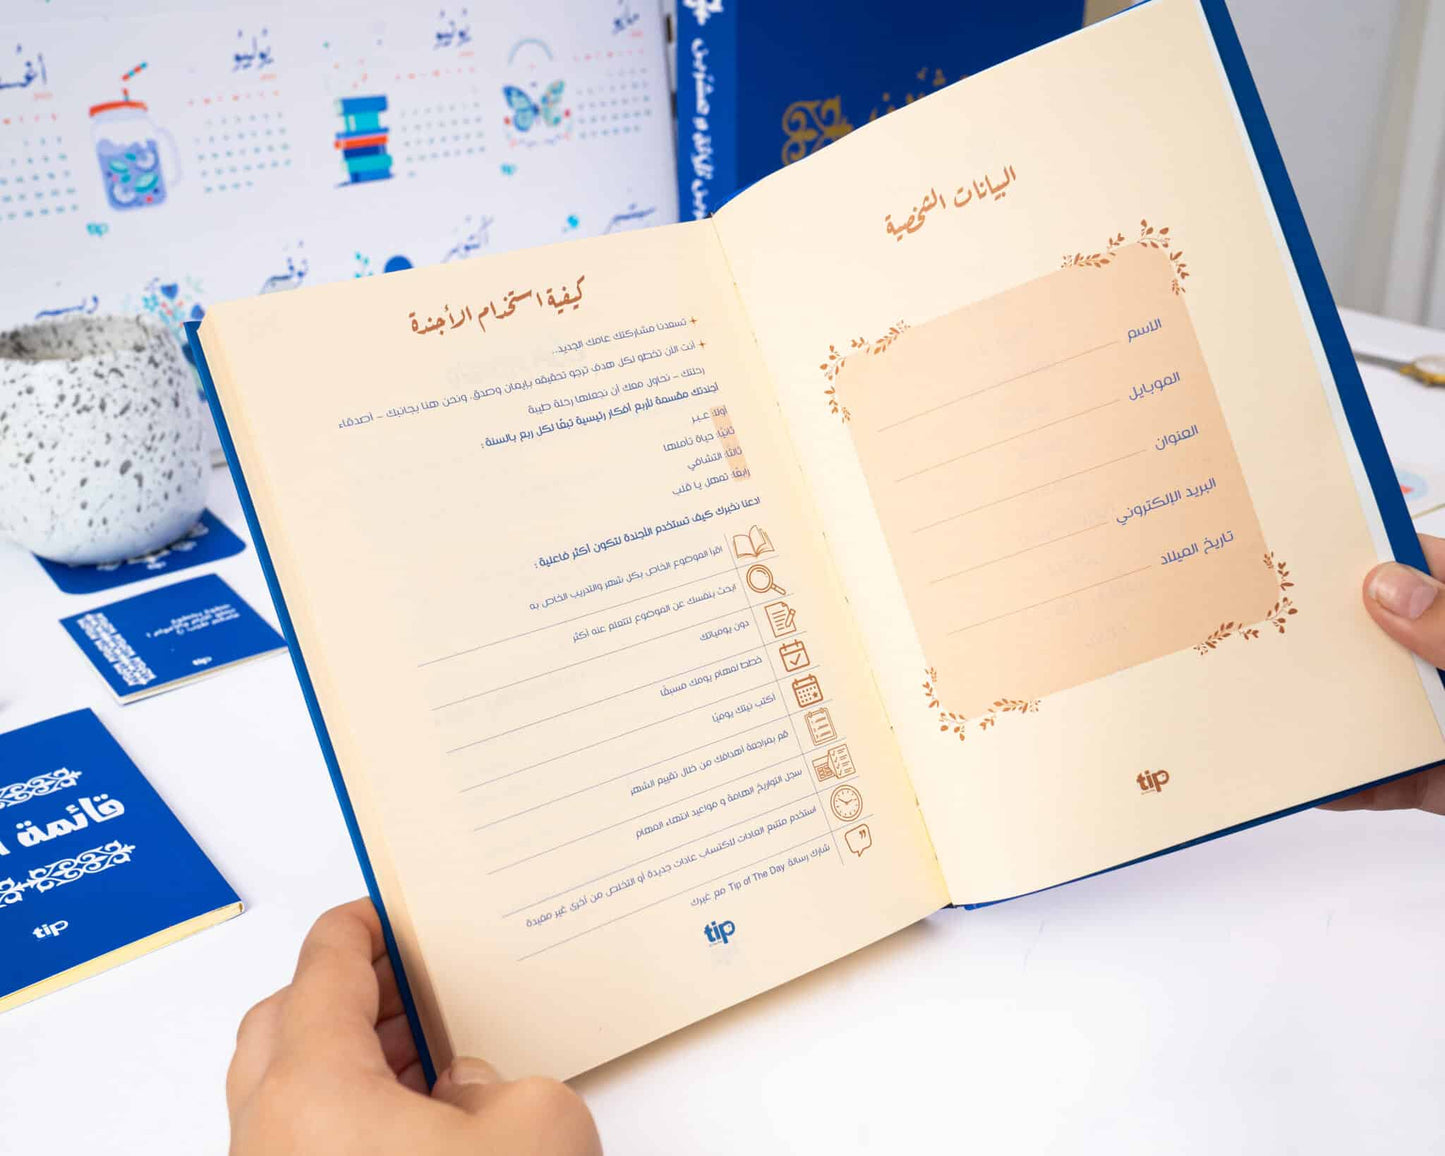 البيانات الشخصية
الاسم
الموبايل
العنوان
البريد الإلكتروني
تاريخ الميلاد
tip
كيفية استخدام الأجندة
+ تسعدنا مشاركتك عامك الجديد..
+ أنت الآن تخطو لكل هدف ترجو تحقيقه بإيمان وصدق. ونحن هنا بجانبك – أصدقاء
رحلتك – نحاول معك أن نجعلها رحلة طيبة
أجندتك مقسمة لأربع أفكار رئيسية تبعًا لكل ربع بالسنة :
أولا: عبر
ثانيًا: حياة تأملها
ثالثًا: التشافي
رابعًا: تمهل يا قلب
ادعنا نخبرك كيف تستخدم الأجندة لتكون أكثر فاعلية :
اقرأ الموضوع الخاص بكل شهر والتدريب الخاص به
ابحث بنفسك عن الموضوع لتتعلم عنه أكثر
دون يومياتك
خطط لمهام يومك مسبقًا
أكتب نيتك يوميًا
قم بمراجعة أهدافك من خلال تقييم الشهر
سجل التواريخ الهامة و مواعيد انتهاء المهام
استخدم متتبع العادات لاكتساب عادات جديدة أو التخلص من أخرى غير مفيدة
شارك رسالة Tip of The Day مع غيرك
tip
مايو
يُونيُو
يُوليُو
أغس
سبتمبر
أكتوبر
نُوفمبر
ديسمبر
tip
tip
ثلاثة و عشرين
tip
قائمة
tip